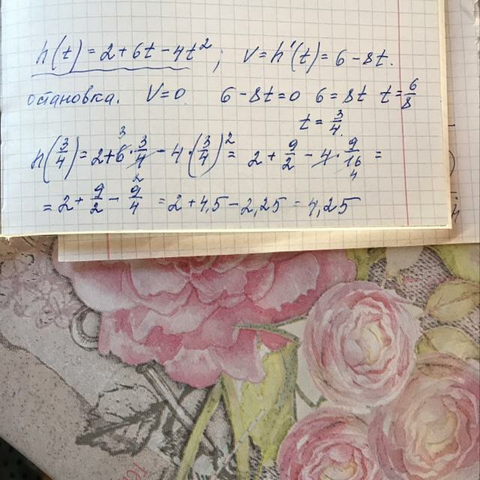 h(t) = 2 + 6t - 4t²; V = h'(t) = 6 - 8t.
остановка. V = 0 6 - 8t = 0 6 = 8t t = 6/8
t = 3/4.
h(3/4) = 2 + 6 · 3/4 - 4 · (3/4)² = 2 + 9/2 - 4 · 9/16 =
= 2 + 9/2 - 9/4 = 2 + 4,5 - 2,25 = 4,25